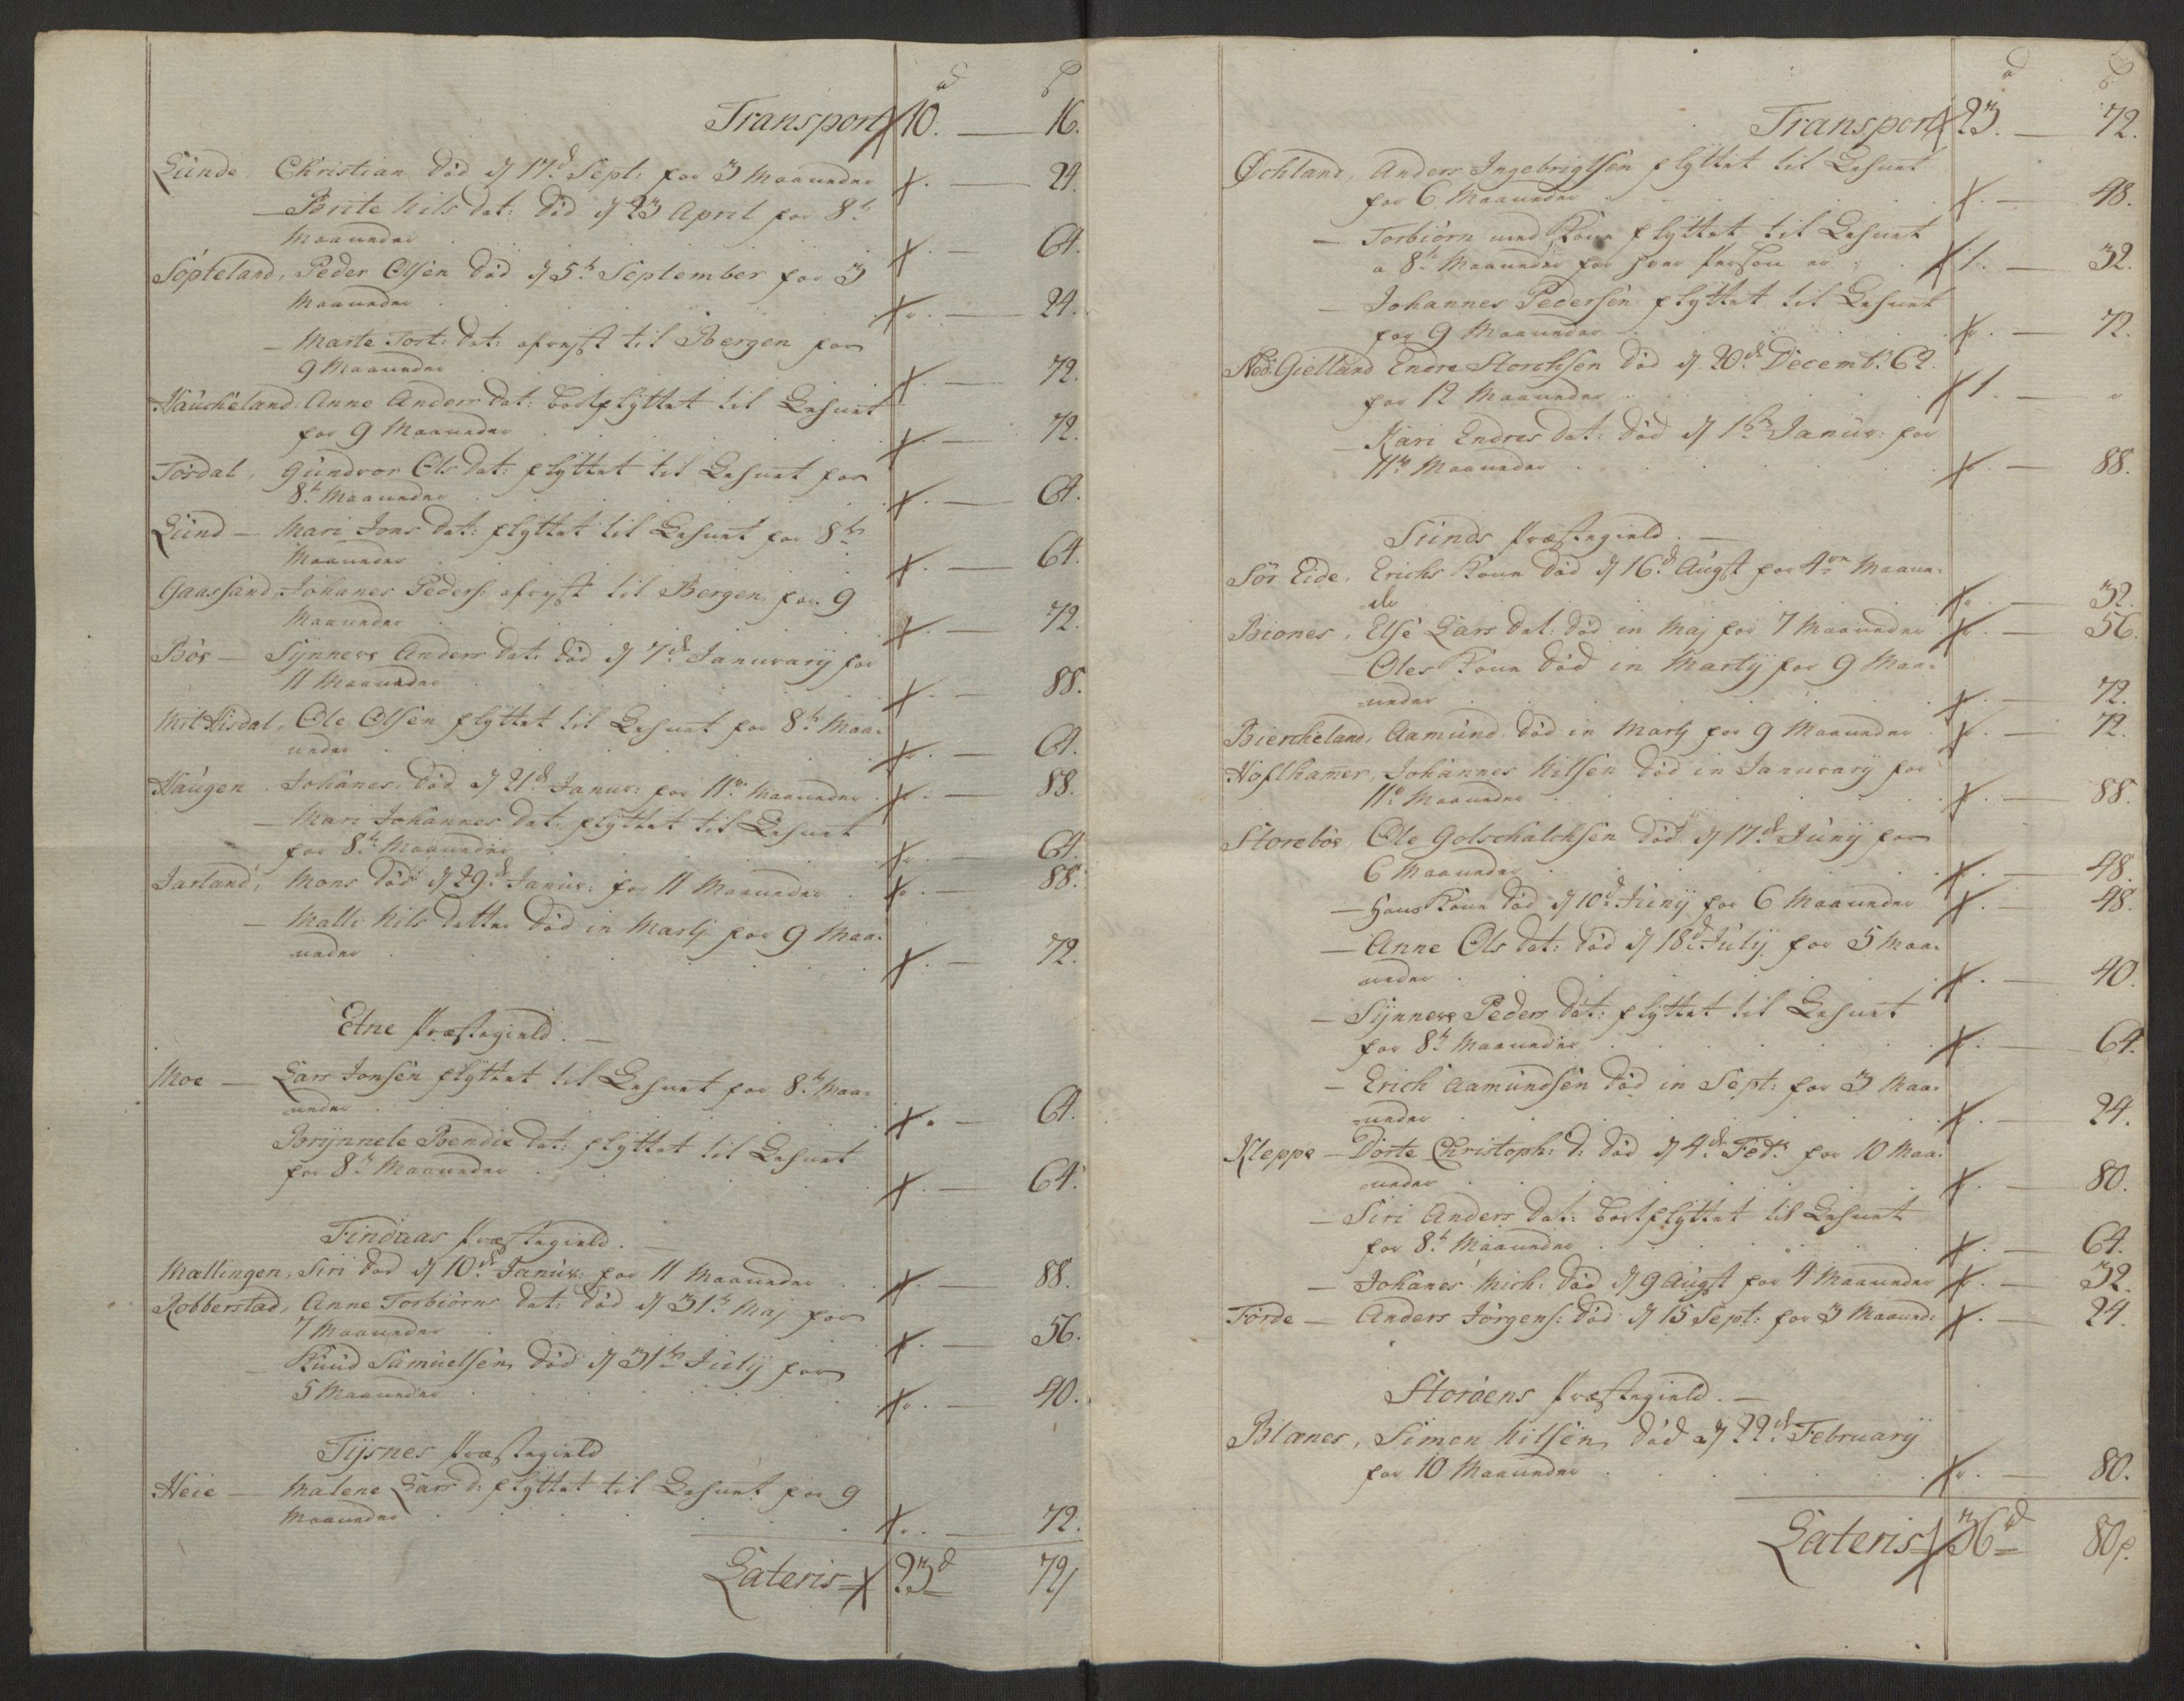 Transport 10. — 16.
Lünde, Christian død d 17de Sept: for 3 Maaneder . — 24.
— Brite Nils dat: død d 23 April for 8te
Maaneder . — 64.
Söpteland, Peder Olsen død d 5te September for 3
Maaneder . — 24.
— Marte Tost: dat: afreyst til Bergen for
9 Maaneder . — 72.
Haücheland, Anne Anders dat: bortflÿttet til Lehnet
for 9 Maaneder . — 72.
Tösdal, Gündvor Ols dat: flÿttet til Lehnet for
8te Maaneder . — 64.
Lünd — Mari Jons dat: flÿttet til Lehnet for 8te
Maaneder . — 64.
Gaassand, Johanes Peders: afreyst til Bergen for 9
Maaneder . — 72.
Böe — Sÿnneve Anders dat: død d 7de Janurarÿ for
11 Maaneder . — 88.
Mit Hisdal, Ole Olsen flÿttet til Lehnet for 8te Maa-
neder . — 64.
Haügen . Johanes død d 21de Janur: for 11ve Maaneder . — 88.
— Mari Johannes dat: flÿttet til Lehnet
for 8te Maaneder . — 64.
Jarland, Mons død d 29de Janur: for 11 Maaneder . — 88.
— Malli Nils datter død in Martj for 9 Maa-
neder . — 72.
Etne Præstegield. —
Moe — Lars Jonsen flÿttet til Lehnet for 8te Maa-
neder . — 64.
Brÿnnele Bendix dat: flÿttet til Lehnet
for 8te Maaneder . — 64.
Findaas Præstegield. —
Mællingen, Siri død d 10de Janur: for 11 Maaneder . — 88.
Robberstad, Anne Torbiörns dat: død d 31te Maj for
7 Maaneder . — 56.
— Knüd Samuelsen død d 31te Jülÿ for
5 Maaneder . — 40.
Tÿsnes Præstegield
Heie — Malene Lars d: flÿttet til Lehnet for 9
Maaneder . — 72.
Lateris 23d 72
Transport 23. — 72.
Øchland, Anders Ingebrigtsen flÿttet til Lehnet
for 6 Maaneder . — 48.
— Torbiörn med Kone flÿttet til Lehnet
a 8te Maaneder for hver Person er 1. — 32.
— Johannes Pedersen flÿttet til Lehnet
for 9 Maaneder . — 72.
Ned: Gielland Endre Storchsen død d 20de Decembr 62.
for 12 Maaneder 1. — "
— Kari Endres dat: død d 1ste Janur: for
11ve Maaneder . — 88.
Sünds Præstegield. —
Sör Eide, Erichs Kone død d 16de Augst for 4re Maane-
de . — 32.
Biones, Else Lars dat: død in Maj for 7 Maaneder . — 56.
— Oles Kone død in Martÿ for 9 Maa-
neder . — 72.
Biercheland, Aamünd død in Martj for 9 Maaneder . — 72.
Höflhamer, Johannes Nilsen død in Janurarÿ for
11ve Maaneder . — 88.
Storebös, Ole Golschalchsen død d 17de Junÿ for
6 Maaneder . — 48.
— Hans Kone død d 10de Junÿ for 6 Maaneder . — 48.
— Anne Ols dat: død d 18de Julÿ for 5 Maa-
neder . — 40.
— Sÿnneve Peders dat: flÿttet til Lehnet
for 8te Maaneder . — 64.
— Erich Aamündsen død in Sept: for 3 Maa-
neder . — 24.
Kleppe — Dorte Christoph: d: død d 4de Febr for 10 Maa-
neder . — 80.
— Siri Anders dat: bortflÿttet til Lehnet
for 8te Maaneder . — 64.
— Johanes Mich: død d 9 Augst for 4 Maaneder . — 32.
Förde — Anders Jörgens: død d 15 Sept: for 3 Maaned: . — 24.
Storöens Præstegield. —
Blanes, Simon Nilsen død d 22de Februarÿ
for 10 Maaneder . — 80.
Lateris 36d 80